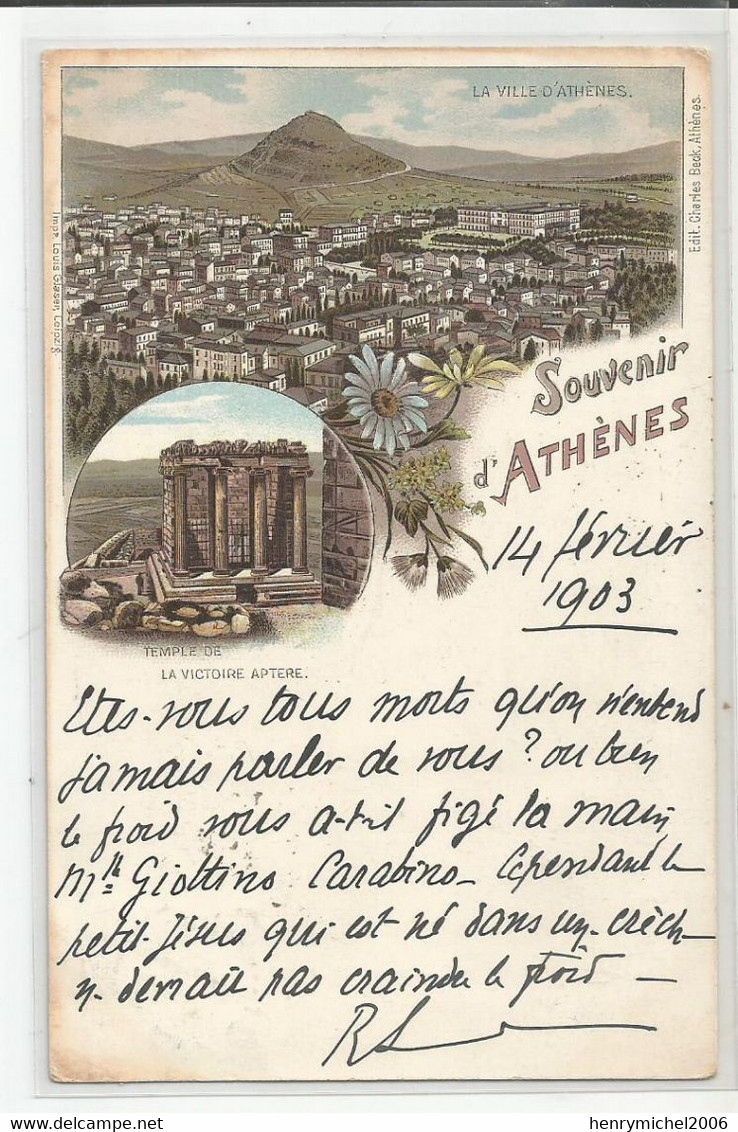 LA VILLE D'ATHÈNES.
Edit. Charles Beck, Athènes.
Impr. Louis Glaser, Leipzig.
Souvenir
d'ATHÈNES
14 février
1903
TEMPLE DE
LA VICTOIRE APTERE.
Etes-vous tous morts qu'on n'entend
jamais parler de vous? ou bien
le froid vous a-t-il figé la main
Mlle Giottino Carabino - Cependant le
petit Jésus qui est né dans un crèch-
n. devrait pas craindre le froid —
RS
delcampe.net
henrymichel2006